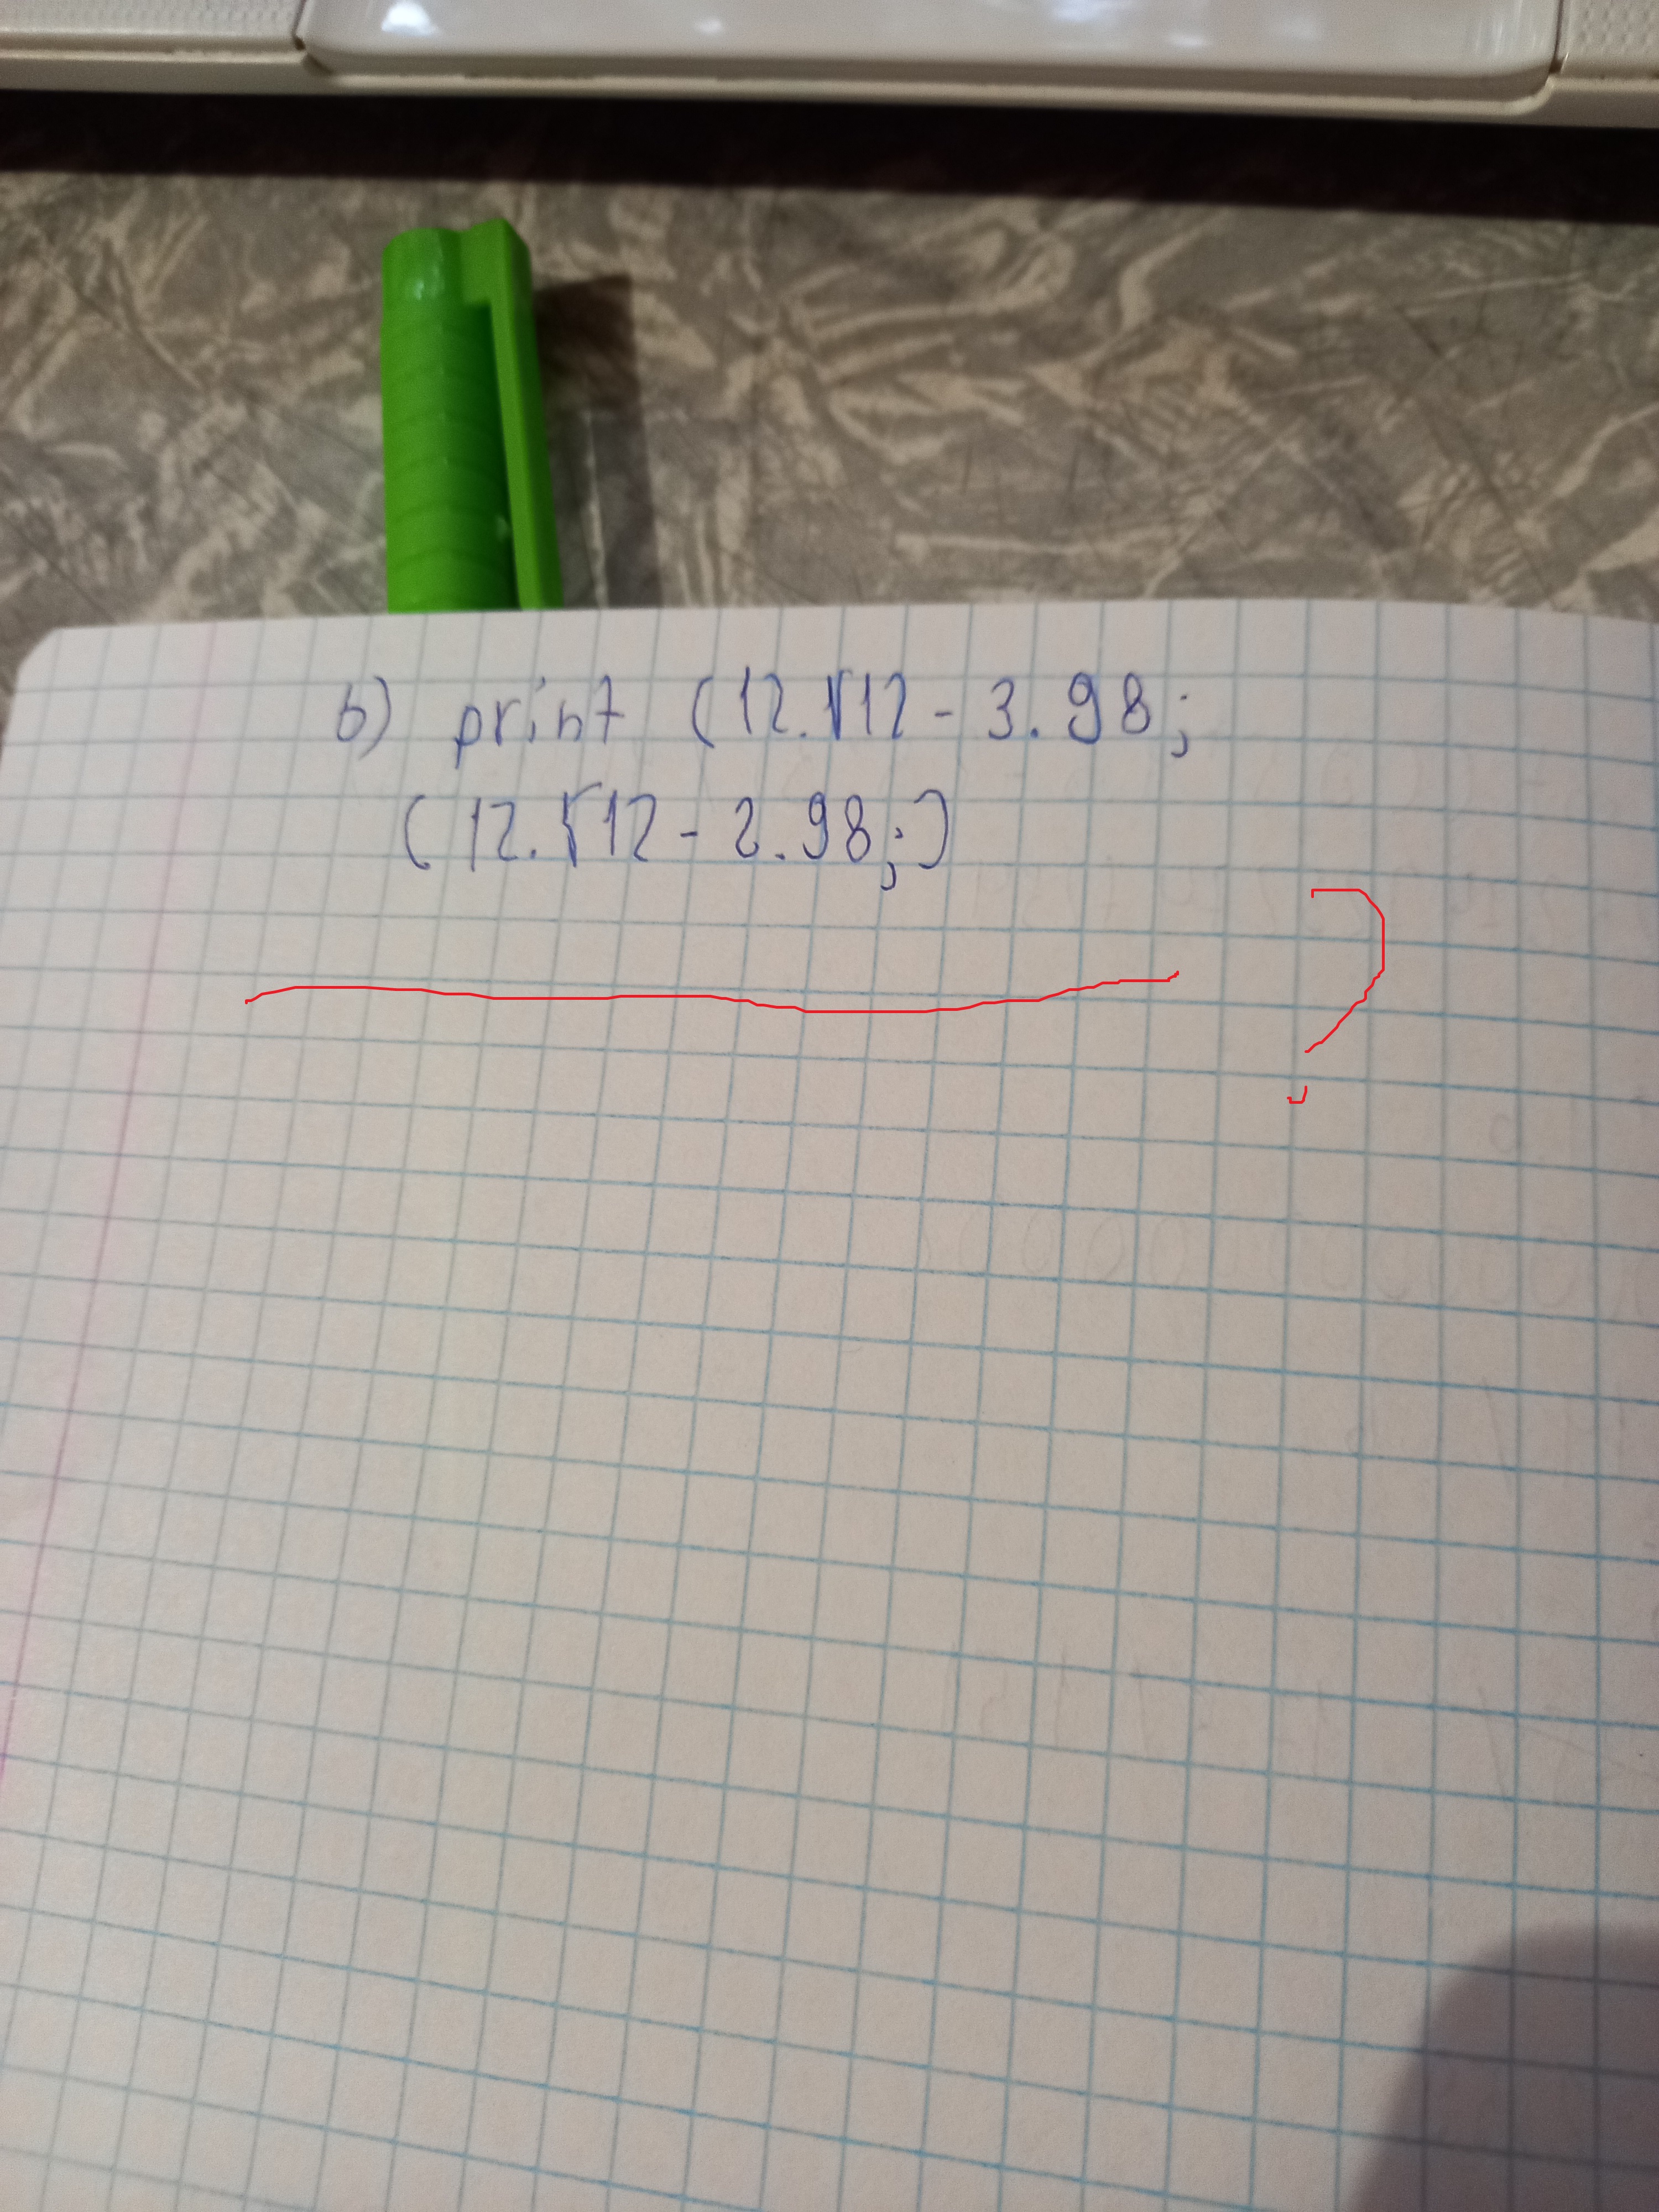 б) print (12.√12 - 3.98;
(12.√12 - 2.98;)
?